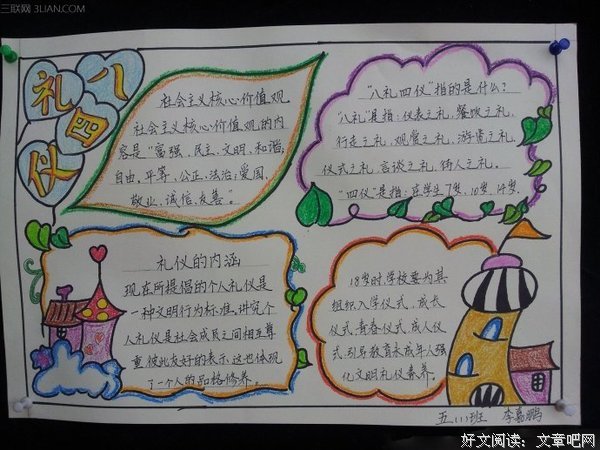 三联网 3LIAN.COM
八
礼
四
仪
社会主义核心价值观
社会主义核心价值观的内
容是“富强、民主、文明、和谐,
自由、平等、公正、法治、爱国、
敬业、诚信、友善”。
“八礼四仪”指的是什么?
“八礼”是指:仪表之礼、餐饮之礼、
行走之礼、观赏之礼、游览之礼、
仪式之礼、言谈之礼、待人之礼。
“四仪”是指:在学生7岁、10岁、14岁、
礼仪的内涵
现在所提倡的个人礼仪是
一种文明行为标准,讲究个
人礼仪是社会成员之间相互尊
重彼此友好的表示,这也体现
了一个人的品格修养。
18岁时学校要为其
组织入学仪式、成长
仪式、青春仪式、成人仪
式,引导教育未成年人强
化文明礼仪素养。
五(1)班 李嘉鹏
好文阅读:文章吧网